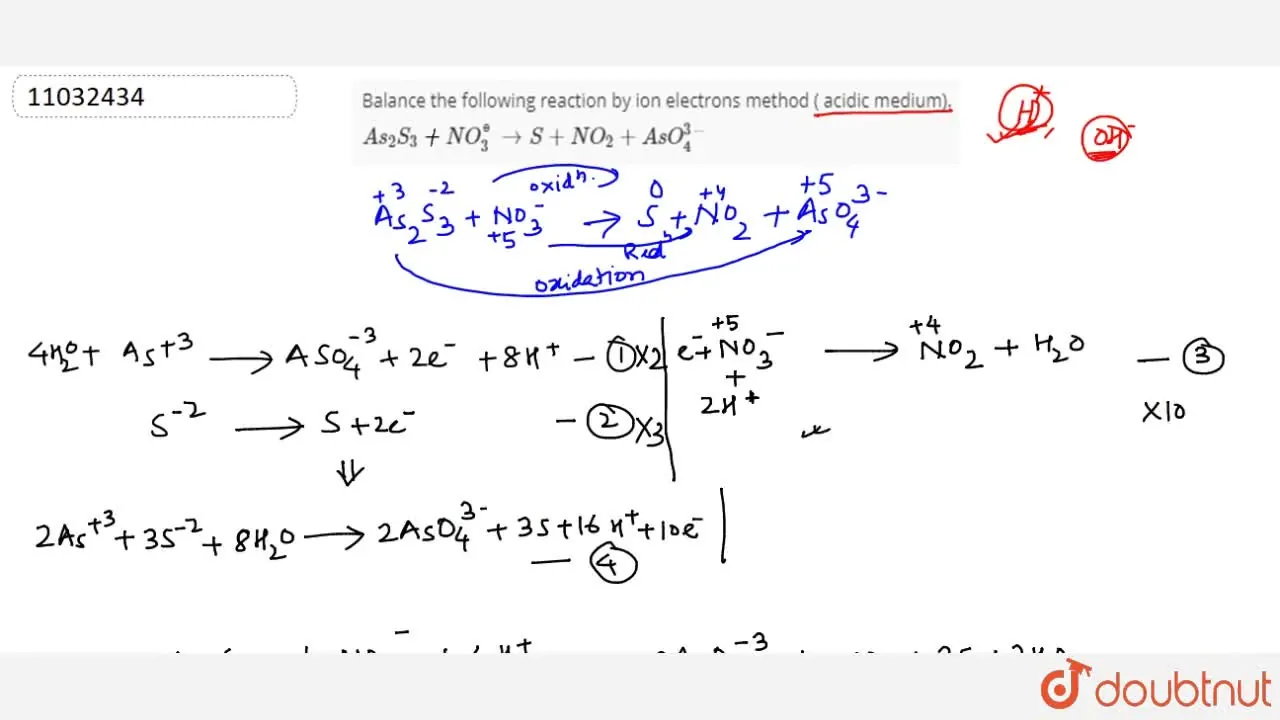 11032434
Balance the following reaction by ion electrons method ( acidic medium),
As₂S₃ + NO₃^⊖ → S + NO₂ + AsO₄³⁻
H⁺
OH⁻
+3 -2 oxidⁿ. 0 +4 +5
As₂S₃ + NO₃⁻ → S + NO₂ + AsO₄³⁻
+5 Redⁿ
oxidation
4H₂O + As⁺³ → AsO₄⁻³ + 2e⁻ + 8H⁺ — ① X2
S⁻² → S + 2e⁻ — ② X3
+5 +4
e⁻ + NO₃⁻ + 2H⁺ → NO₂ + H₂O — ③
X10
⇓
2As⁺³ + 3S⁻² + 8H₂O → 2AsO₄³⁻ + 3S + 16H⁺ + 10e⁻
— ④
doubtnut